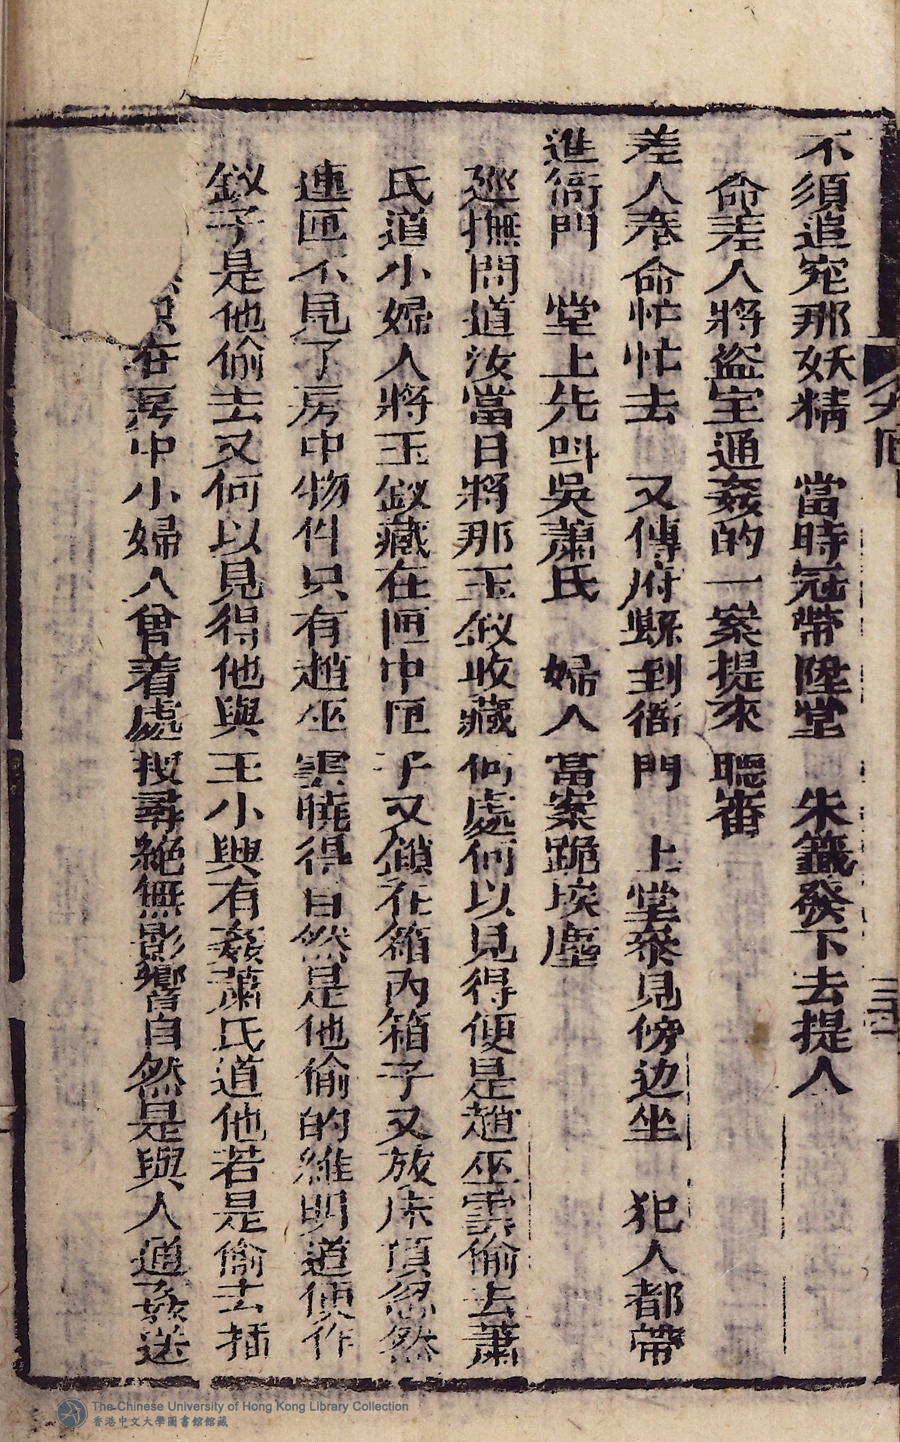 不須追究那妖精　當時冠帶陞堂　朱籤發下去提人
命差人將盜室通姦的一案提來聽審
差人奉命忙忙去　又傳府縣到衙門　上堂叅見傍边坐　犯人都帶
進衙門　堂上先叫吳蕭氏　婦人當案跪埃塵
廵撫問道汝當日將那玉釵收藏何處何以見得便是趙巫雲偷去蕭
氏道小婦人將玉釵藏在匣中匣子又鎖在箱內箱子又放床頂忽然
連匣不見了房中物件只有趙巫雲曉得自然是他偷的維明道便作
釵子是他偷去又何以見得他與王小興有姦蕭氏道他若是偷去插
在房中小婦人曾着處搜尋絕無影響自然是與人通姦送
The Chinese University of Hong Kong Library Collection
香港中文大學圖書館館藏